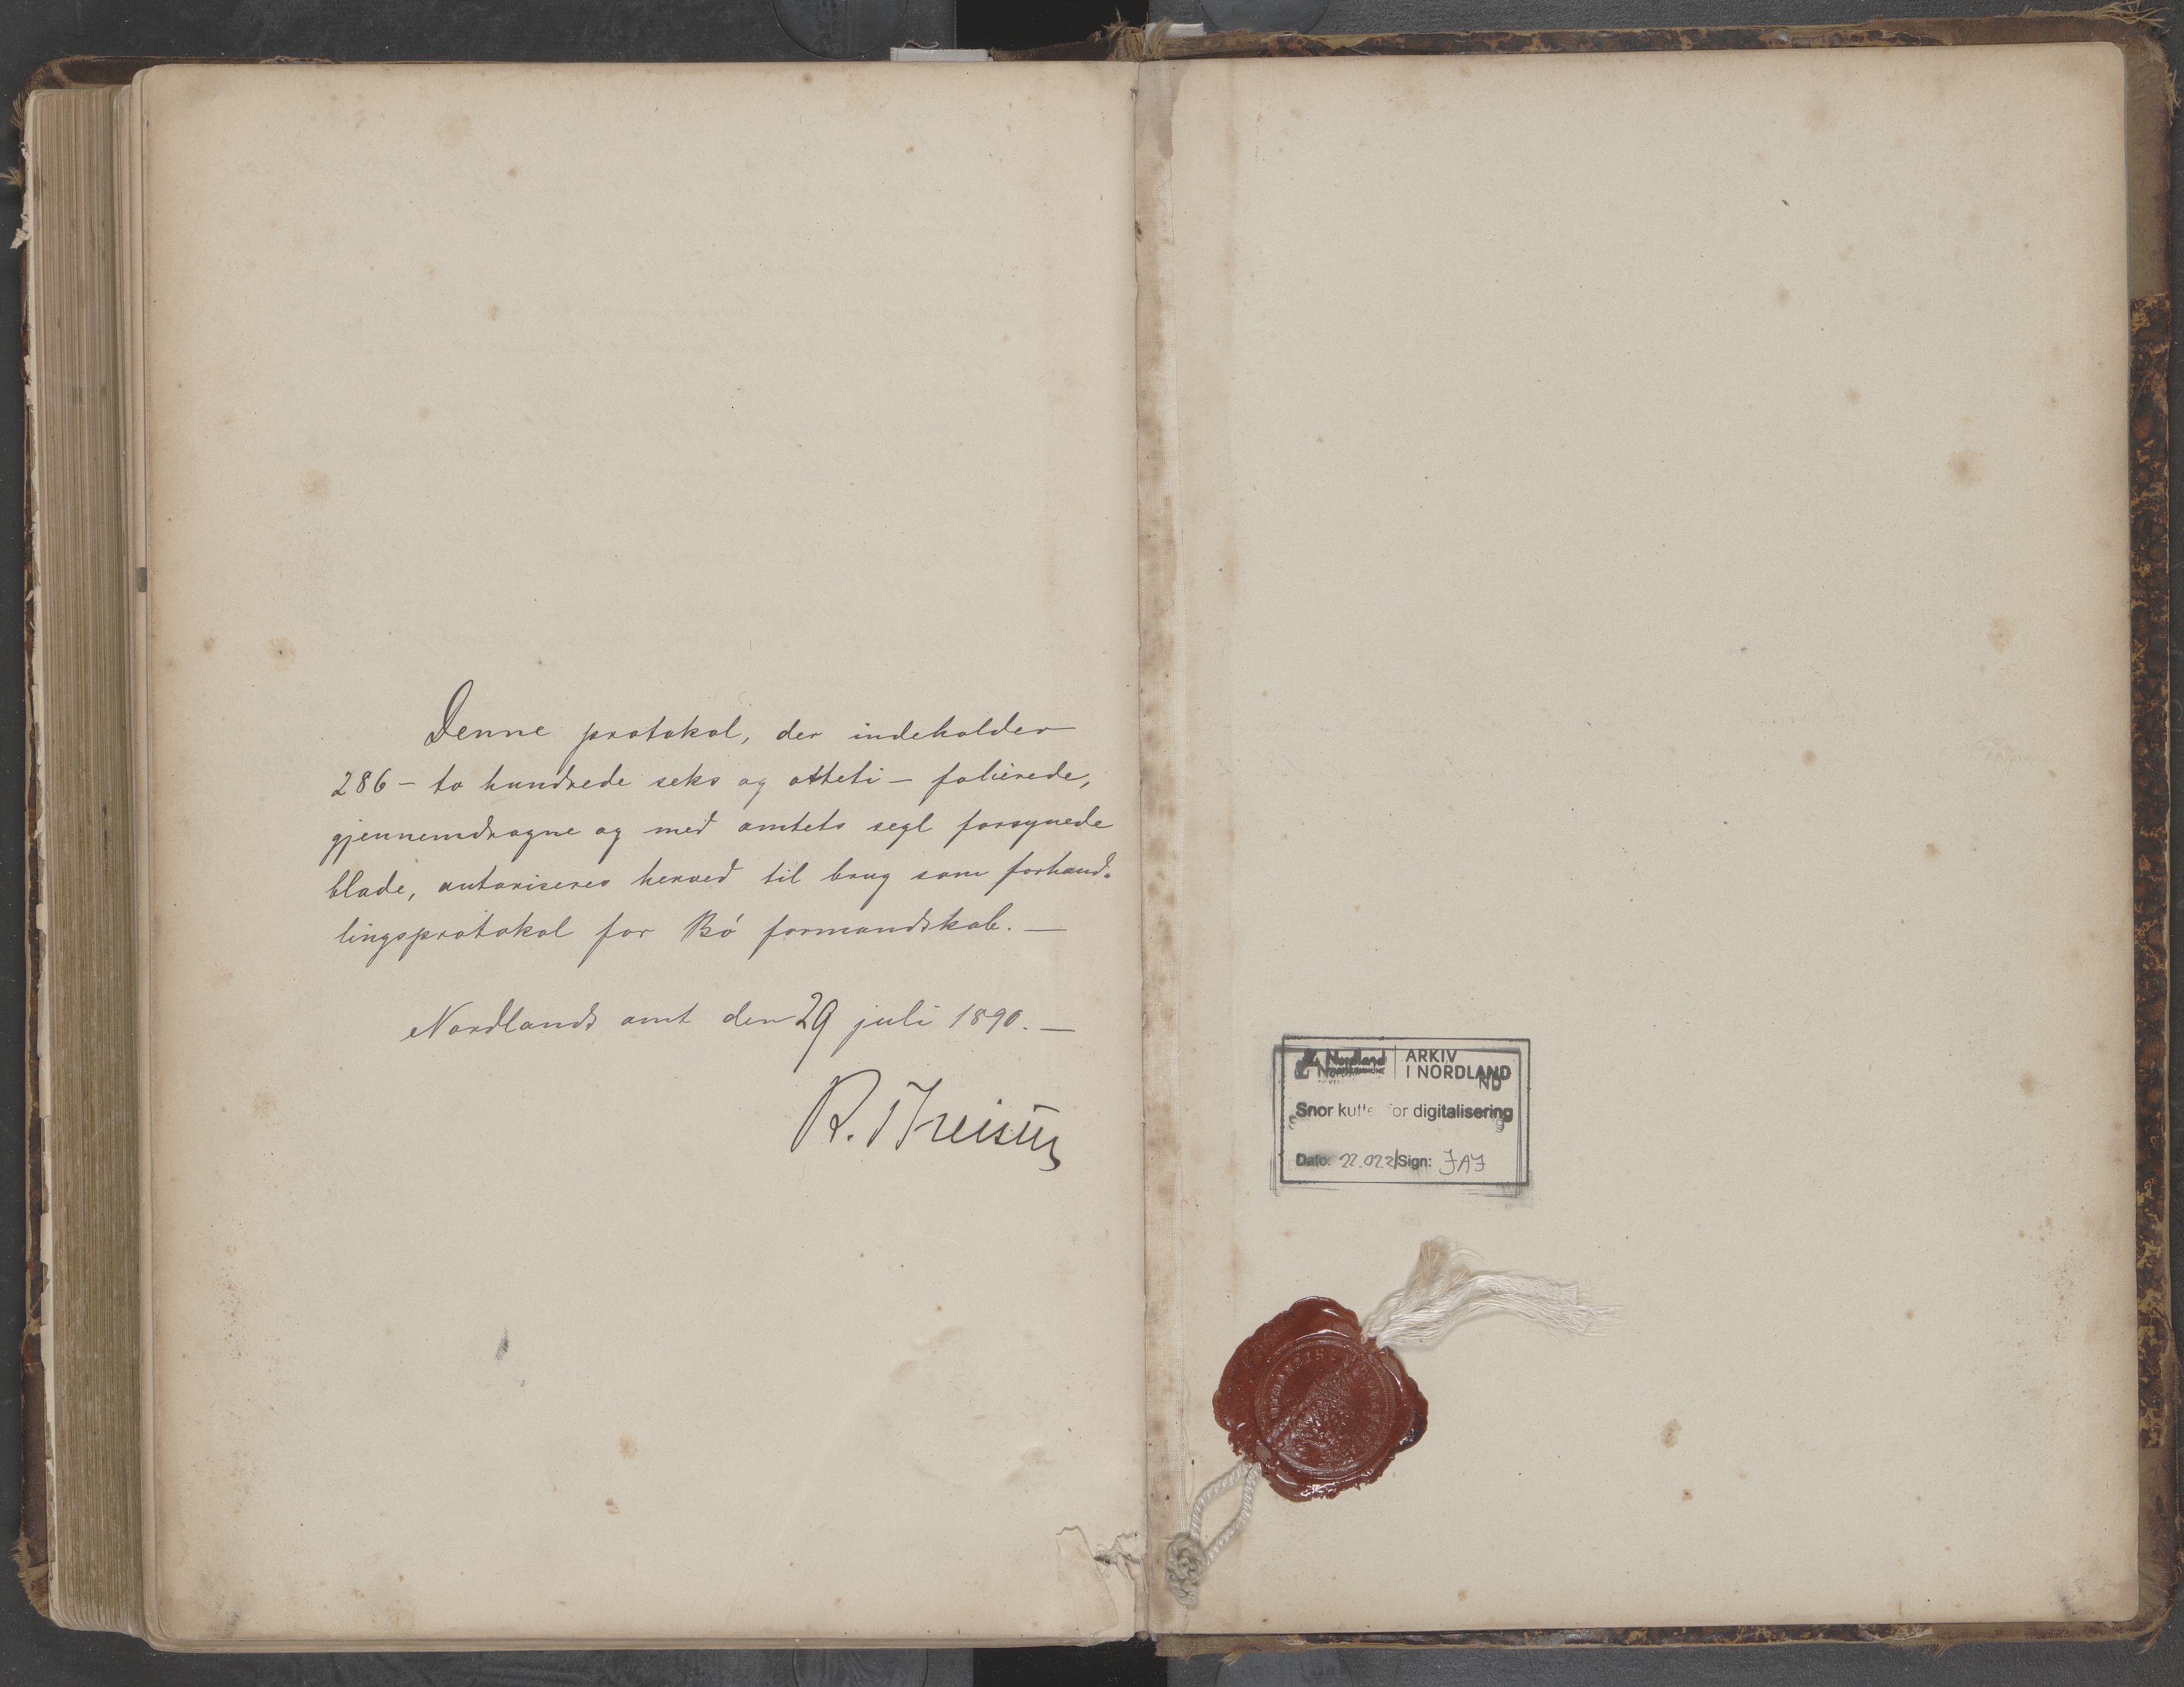 Denne protokol, der indeholder
286 - to hundrede seks og otteti - folierede,
gjennemdragne og med amtets segl forsynede
blade, autoriseres herved til brug som forhand-
lingsprotokol for Bó formandskab. —
Nordlands amt den 29 juli 1890. —
R.
Nordland | ARKIV
I NORDLAND
Snor kuttet for digitalisering
Dato: 22.022 Sign: JAJ